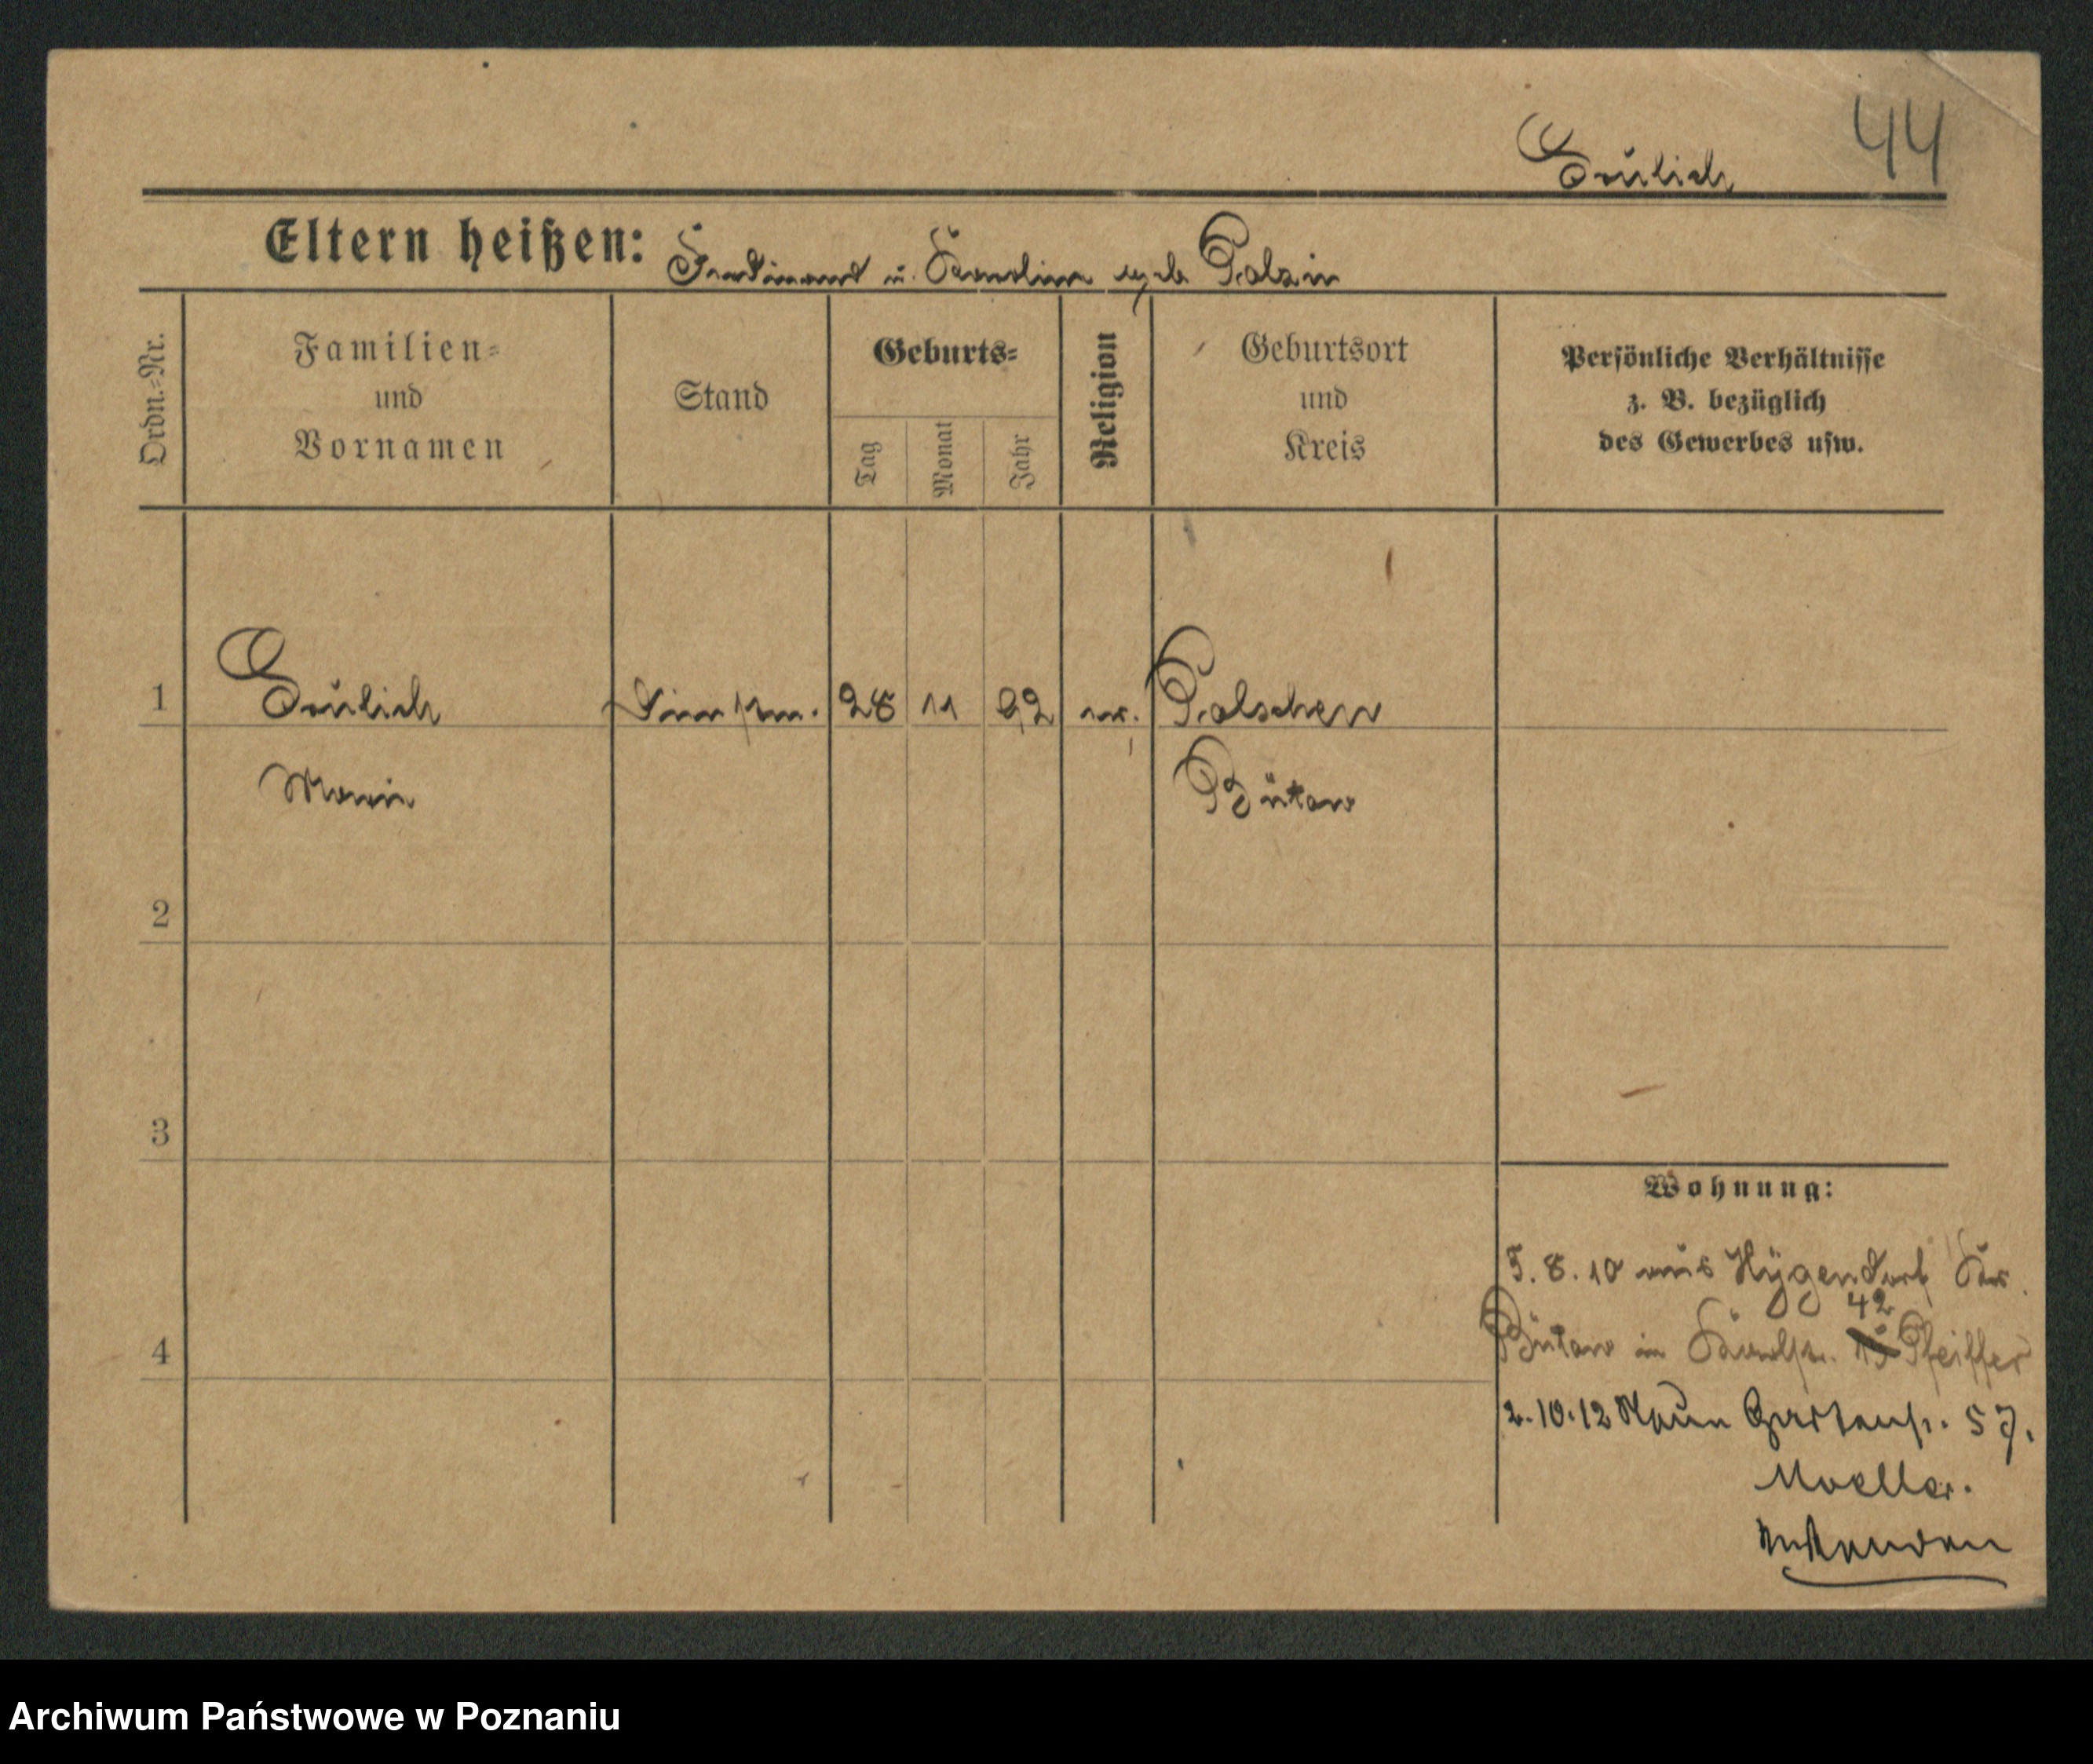 44
Eltern heißen: Ferdinand u. geb. Polzin
Ordn.=Nr.
Familien=
und
Vornamen
Stand
Geburts=
Tag
Monat
Jahr
Religion
Geburtsort
und
Kreis
Persönliche Verhältnisse
z. B. bezüglich
des Gewerbes usw.
1
28 11 92 ev. Polschen
Bütow
2
3
4
Wohnung:
5.8.10 aus Hygendorf Krs.
42
Bütow in Pfeiffer
2.10.12 Gartenstr. 57.
Moeller.
Archiwum Państwowe w Poznaniu